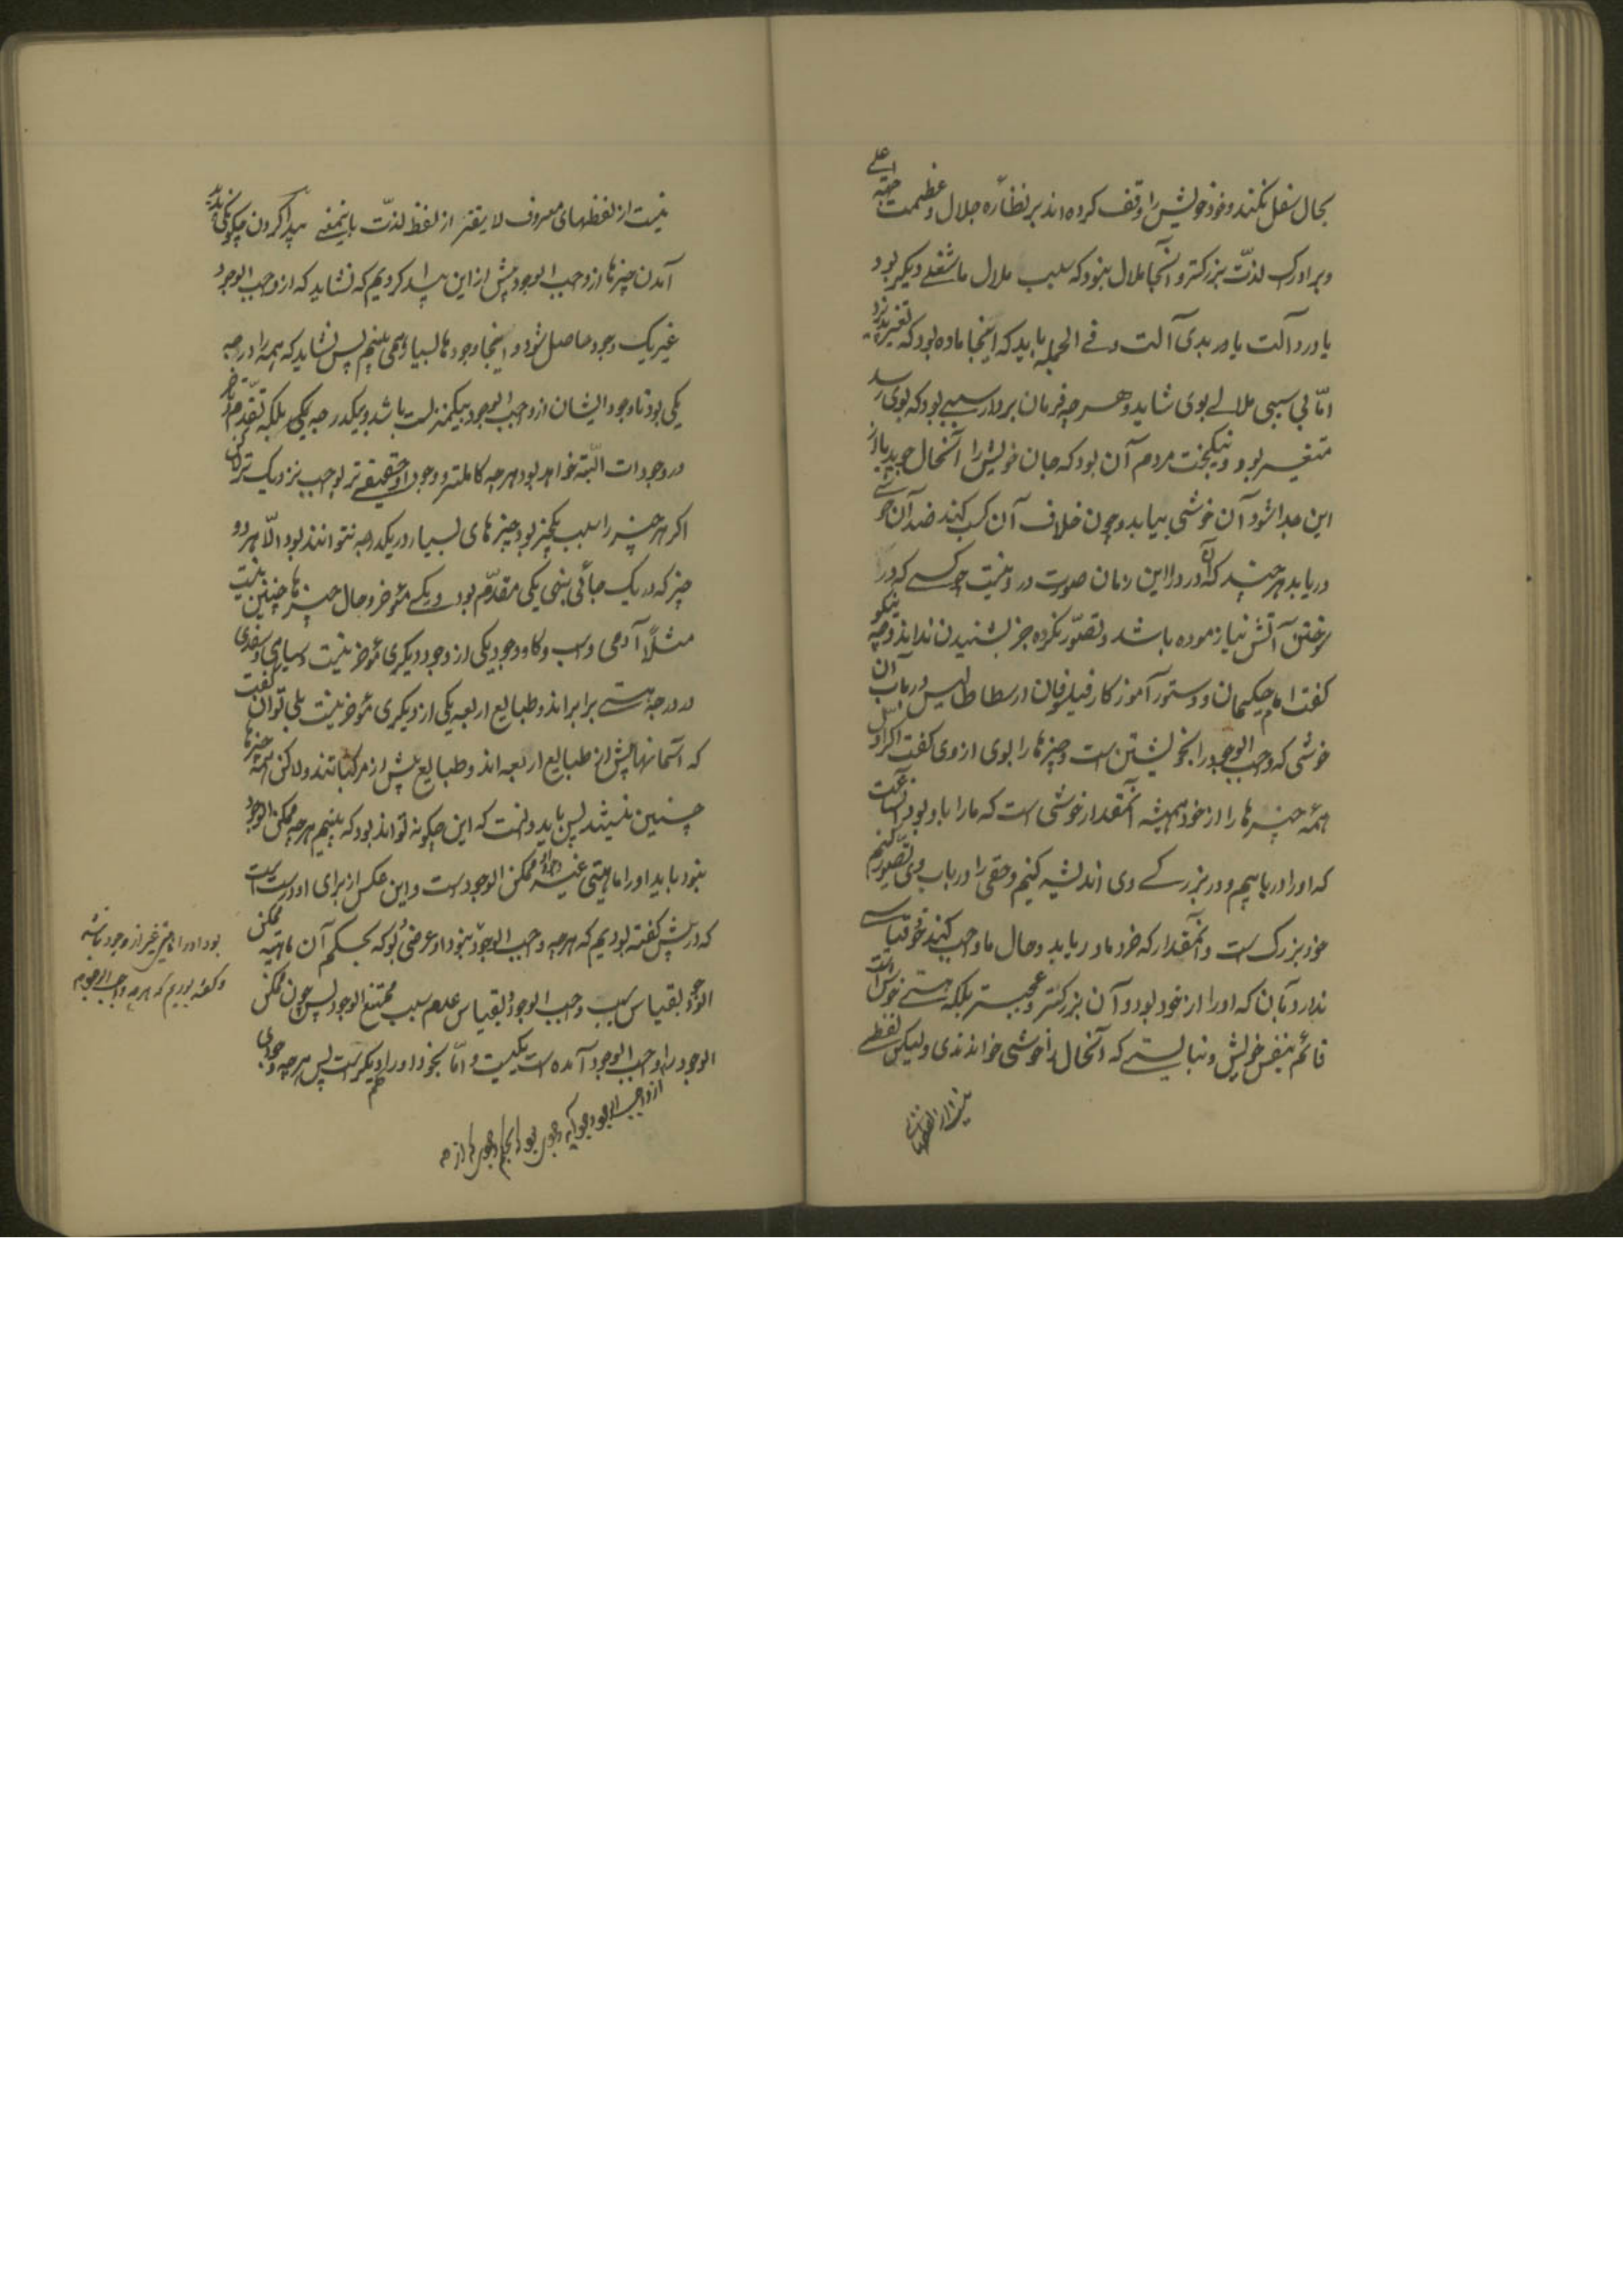 بحال سفل نکنند و خود خویش را وقف کرده‌اند بر نظاره جلال و عظمت جهة اعلی
و بر ادراک لذّت بزرکتر و آنجا ملال نبود که سبب ملال ما شغلے دیکر بود
یا درد آلت یا در بدی آلت و فے الجمله باید که اینجا ماده بود که تغیر پذیرد
امّا بی سببی ملالے بوی شاید و هر چه فرمان بردار سببے بود که بوی رسد
متغیر بود و نیکبخت مردم آن بود که جان خویش را آنحال جوید تا از
این جدا شود آن خوشی بیابد و چون خلاف آن کسب کند ضد آن خوشے
دریابد هر چند که آن درد را این زمان صورت درد نیست چو کسے که در
سوختن آتش نیازموده باشد و تصوّر نکرده جز بشنیدن نداند و چه نیکو
کفت امام حکیمان و دستور آموزکار فیلسوفان ارسطاطالیس در باب آن
خوشی که واجب الوجود را بخویشتن است و چیزها را بوی از وی کفت اکر اول
همه چیزها را از خود همیشه آنمقدار خوشی است که ما را باو بود آنساعت
که او را دریابیم و در بزرکے وی اندیشه کنیم و حقی را در باب وی تصور کنیم
خود بزرک است و آنمقدار که خرد ما دریابد و حال ما واجب کند خود قیاسے
ندارد بآن که او را از خود بود و آن بزرکتر و عجبتر بلکه هستے خوش است
قائم بنفس خویش و نبایستے که آنحال را خوشی خوانندی ولیکن لفظے
نیست از لفظهاے
نیست از لفظهای معروف لایقتر از لفظ لذّت باینمعنے پیدا کردن چکونکی پدید
آمدن چیزها از واجب الوجود پیش از این پیدا کردیم که نشاید که از واجب الوجود
غیر یک وجود حاصل شود و اینجا وجودها بسیار همی بینیم پس نشاید که همه را درجه
یکی بود تا وجود ایشان از واجب الوجود بیکمنزلت باشد و بیکدرجه یکی بلکه تقدّم و تاخر
در وجودات البتّه خواهد بود هر چه کاملتر و وجود او حقیقے تر بواجب نزدیک تر لکن
اکر هر چیز را سبب یکچیز بود چیزهای بسیار در یکدرجه نتوانند بود الّا هر دو
چیز که در یک جائی بینی یکی مقدّم بود و یکے مؤخر و حال چیزها چنین نیست
مثلاً آدمی و اسب و کاو وجود یکی از وجود دیکری مؤخر نیست و سیاهی و سفیدی
در درجه هستے برابراند و طبایع اربعه یکی از دیکری مؤخر نیست بلی توان کفت
که آسمانها پیش از طبایع اربعه‌اند و طبایع پیش از مرکباتند ولاکن همه چیزها
چنین نیستند پس باید دانست که این چکونه تواند بود که بینیم هر چه ممکن الوجود
نبود باید او را ماهیتی غیر وجود ممکن الوجود است و این عکس از برای او درست است
که در پیش کفته بودیم که هر چه واجب الوجود نبود او عرضی بود که بحکم آن ماهیه ممکن
الوجود بقیاس سبب واجب الوجود و بقیاس عدم سبب ممتنع الوجود پس چون ممکن
الوجود را واجب الوجود آمده است یکیست و امّا بخود او را حکم دیکر است پس هر چه وجودی
بود او را ماهیتی غیر از وجود باشد
و کفته بودیم که هر چه واجب الوجود